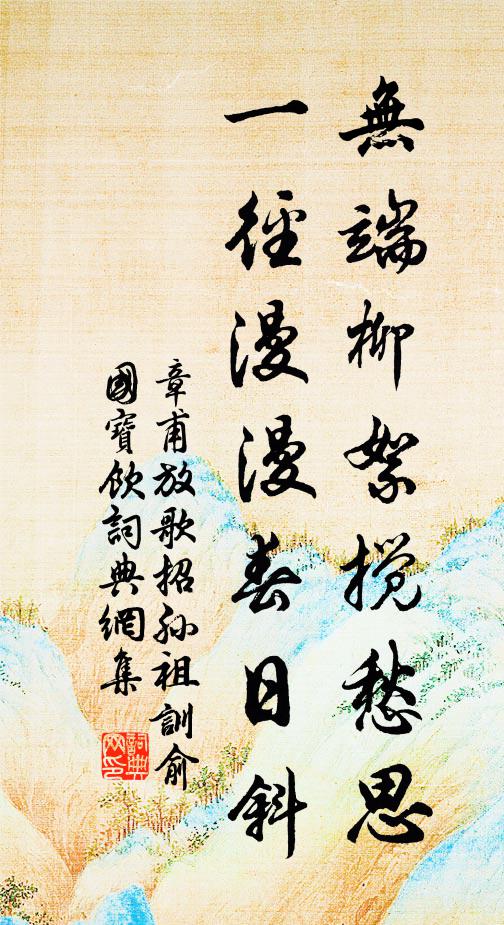 無端柳絮攪愁思
一徑漫漫春日斜
章甫放歌招孫祖訓俞
國寶飲詞典網集
詞典網印